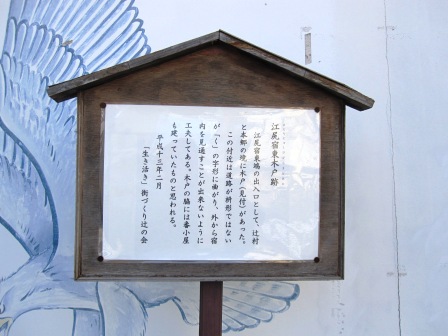 江尻宿東木戸跡
江尻宿東端の出入口として、辻村
と本郷の境に木戸(見付)があった。
この付近は道路が枡形ではない
が「く」の字形に曲がり、外から宿
内を見通すことが出来ないように
工夫してある。木戸の脇には番小屋
も建っていたものと思われる。
平成十三年二月
「生き活き」街づくり辻の会